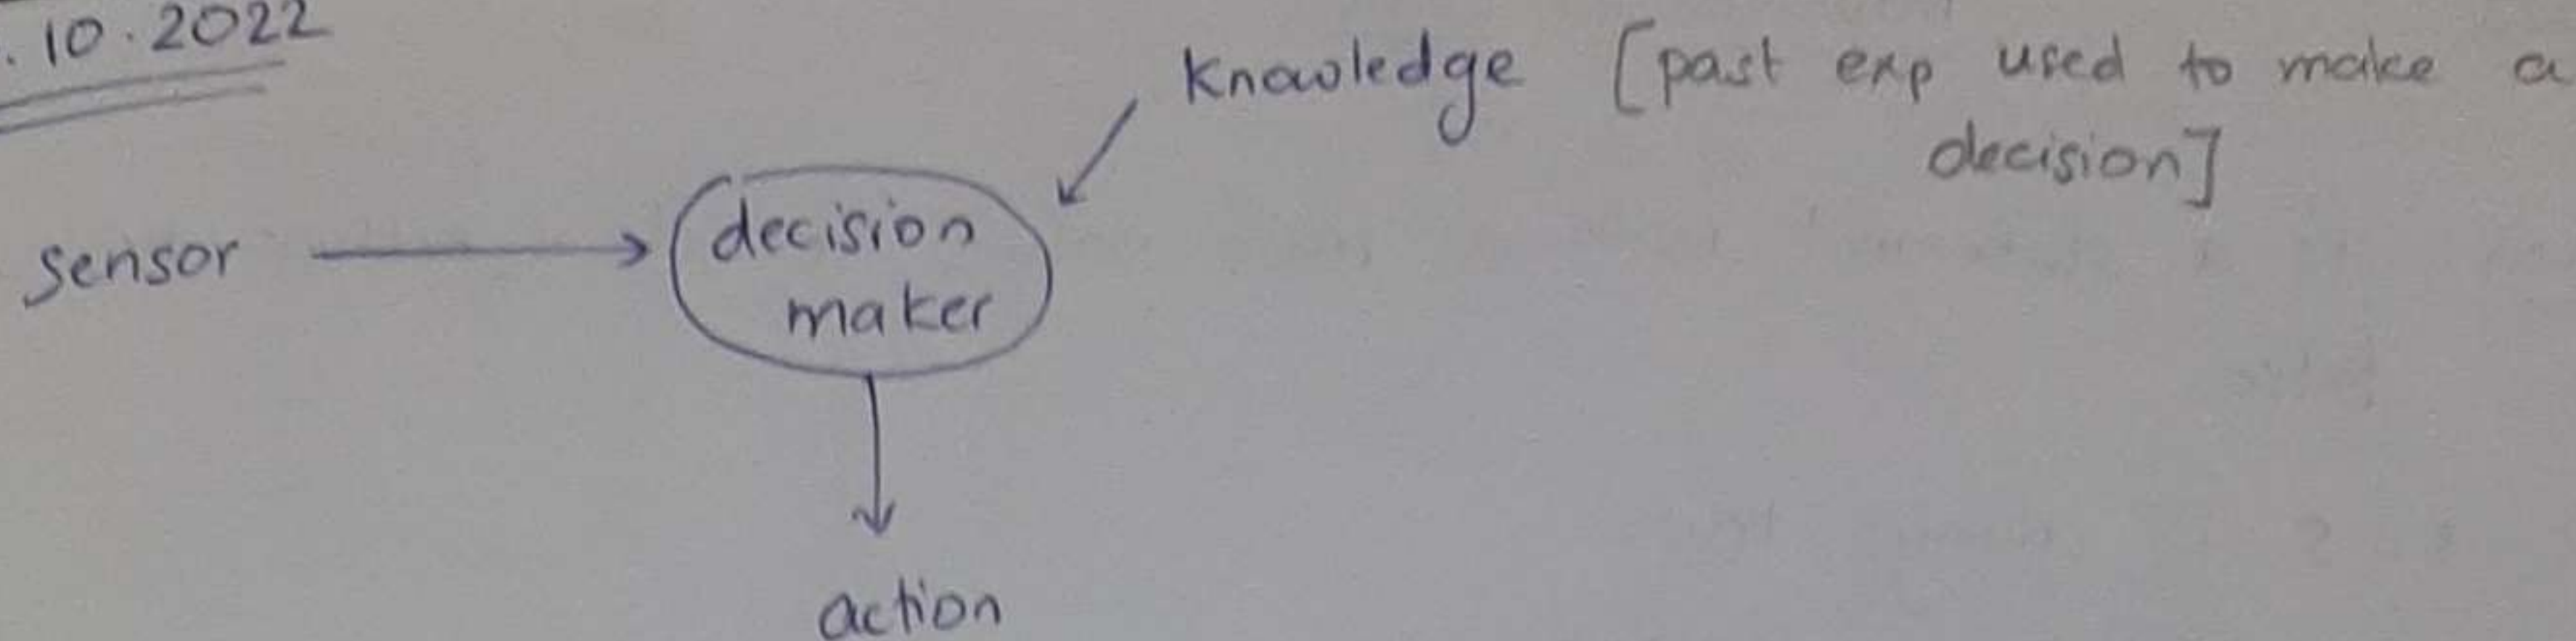 .10.2022
knowledge [past exp used to make a
decision]
sensor
decision
maker
action